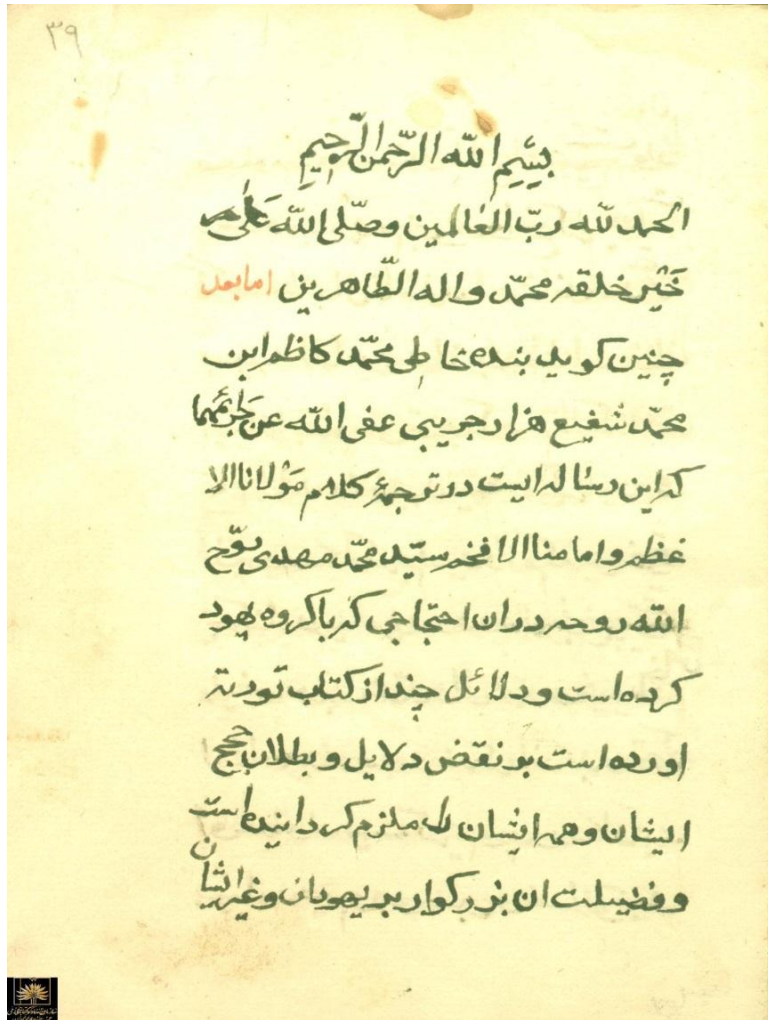 ۳۹
بسم الله الرّحمن الرّحیم
الحمد لله ربّ العالمین وصلّی الله علی
خیر خلقه محمّد واله الطّاهرین اما بعد
چنین کوید بنده خاطی محمّد کاظم ابن
محمّد شفیع هزارجریبی عفی الله عن جرائمهما
که این رساله ایست در ترجمهٔ کلام مولانا الا
عظم و امامنا الافخم سیّد محمّد مهدی روّح
الله روحه در ان احتجاجی که با کروه یهود
کرده است و دلائل چند از کتاب توریة
اورده است بر نقض دلایل و بطلان حجج
ایشان و همه ایشان را ملزم کردانیده است
و فضیلت ان بزرکوار بر یهودان و غیر ایشان